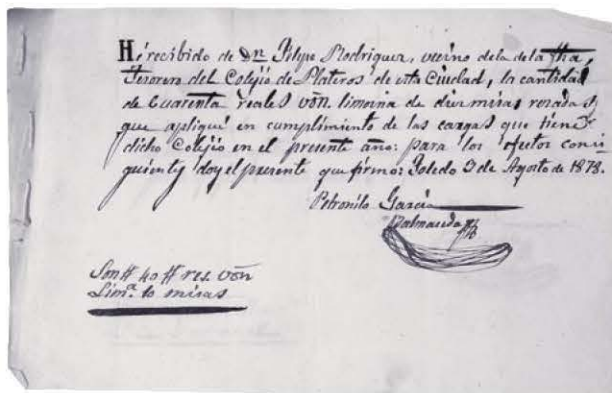 Hé recibido de Dn Felipe Rodriguez, vecino de la de la fha,
Tesorero del Colejio de Plateros de esta Ciudad, la cantidad
de Cuarenta reales von limosna de diez misas rezadas,
que apliqué en cumplimiento de las cargas que tiene
dicho Colejio en el presente año: para los efectos consi
guientes doy el presente que firmo: Toledo 3 de Agosto de 1873.
Petronilo García
Valmaseda
Son # 40 # rs. von
Limna 10 misas